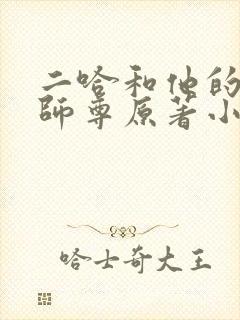 二哈和他的
師尊原著小
哈士奇大王